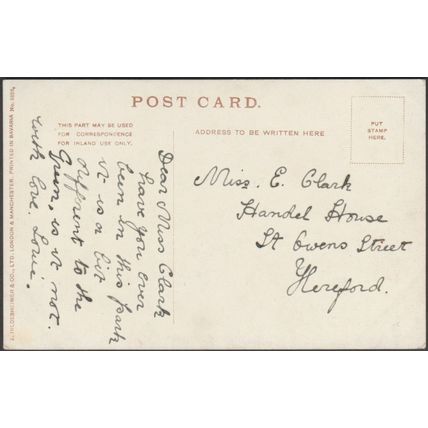 POST CARD.
THIS PART MAY BE USED
FOR CORRESPONDENCE
FOR INLAND USE ONLY.
ADDRESS TO BE WRITTEN HERE
PUT
STAMP
HERE.
Dear Miss Clark
have you ever
been in this park
it is a bit
different to the
Green, is it not.
with love. Louie.
Miss. E. Clark
Handel House
St Owens Street
Hereford.
HILDESHEIMER & CO., LTD. LONDON & MANCHESTER. PRINTED IN BAVARIA